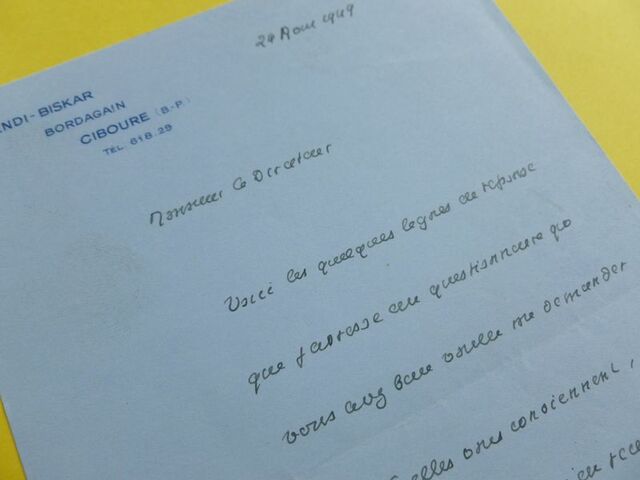 24 Aout 1949
ENDI-BISKAR
BORDAGAIN
CIBOURE (B.-P.)
TEL. 618.29
Monsieur le Directeur
Voici les quelques lignes en réponse
que j'adresse au questionnaire
vous avez bien voulu me demander
elles vous conviennent,